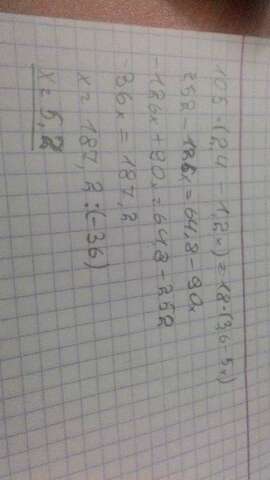 105·(2,4 - 1,2x) = 18·(3,6-5x)
252 - 126x = 64,8 - 90x
-126x + 90x = 64,8 - 252
-36x = 187,2
x = 187,2 : (-36)
x = 5,2